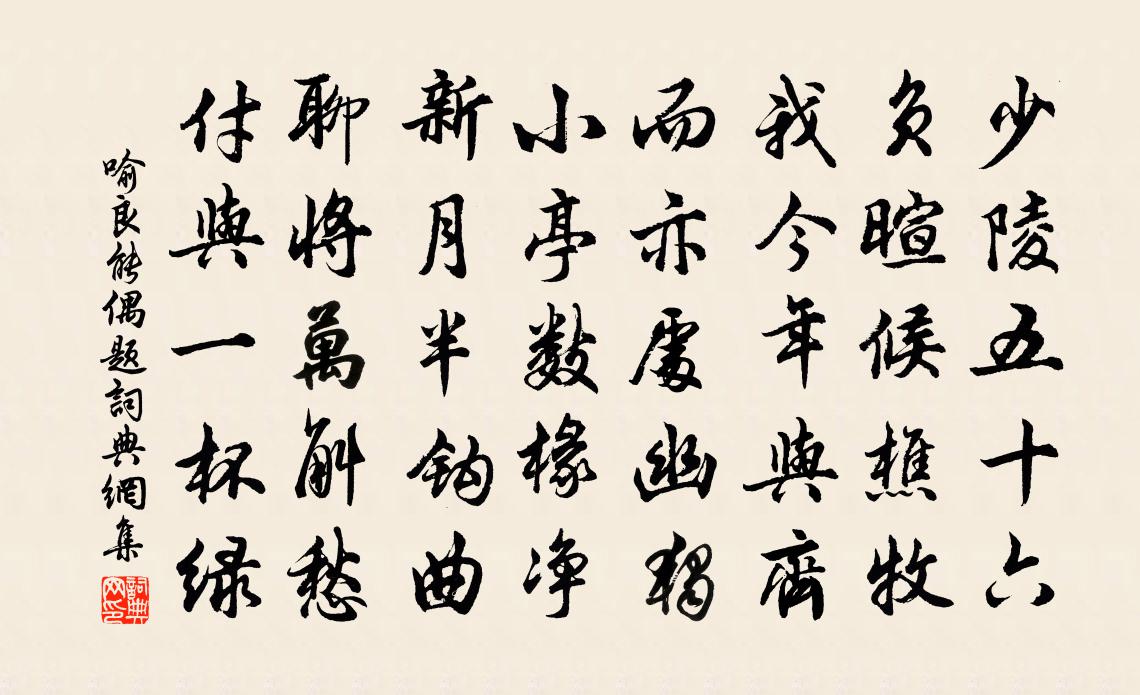 少陵五十六
負暄候樵牧
我今年與齊
而亦處幽獨
小亭數椽净
新月半鈎曲
聊將萬斛愁
付與一杯綠
喻良能偶題詞典網集
詞典網印